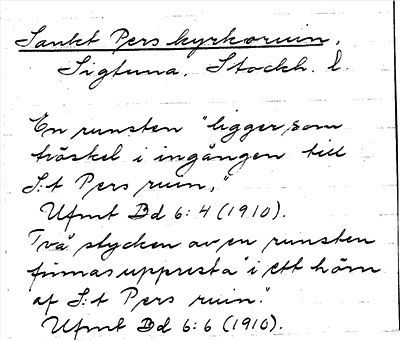 Sankt Pers kyrkoruin,
Sigtuna, Stockh. l.
En runsten "ligger som
tröskel i ingången till
S:t Pers ruin,"
Ufmt Bd 6:4 (1910).
Två stycken av en runsten
finnas uppresta "i ett hörn
af S:t Pers ruin."
Ufmt Bd 6:6 (1910).